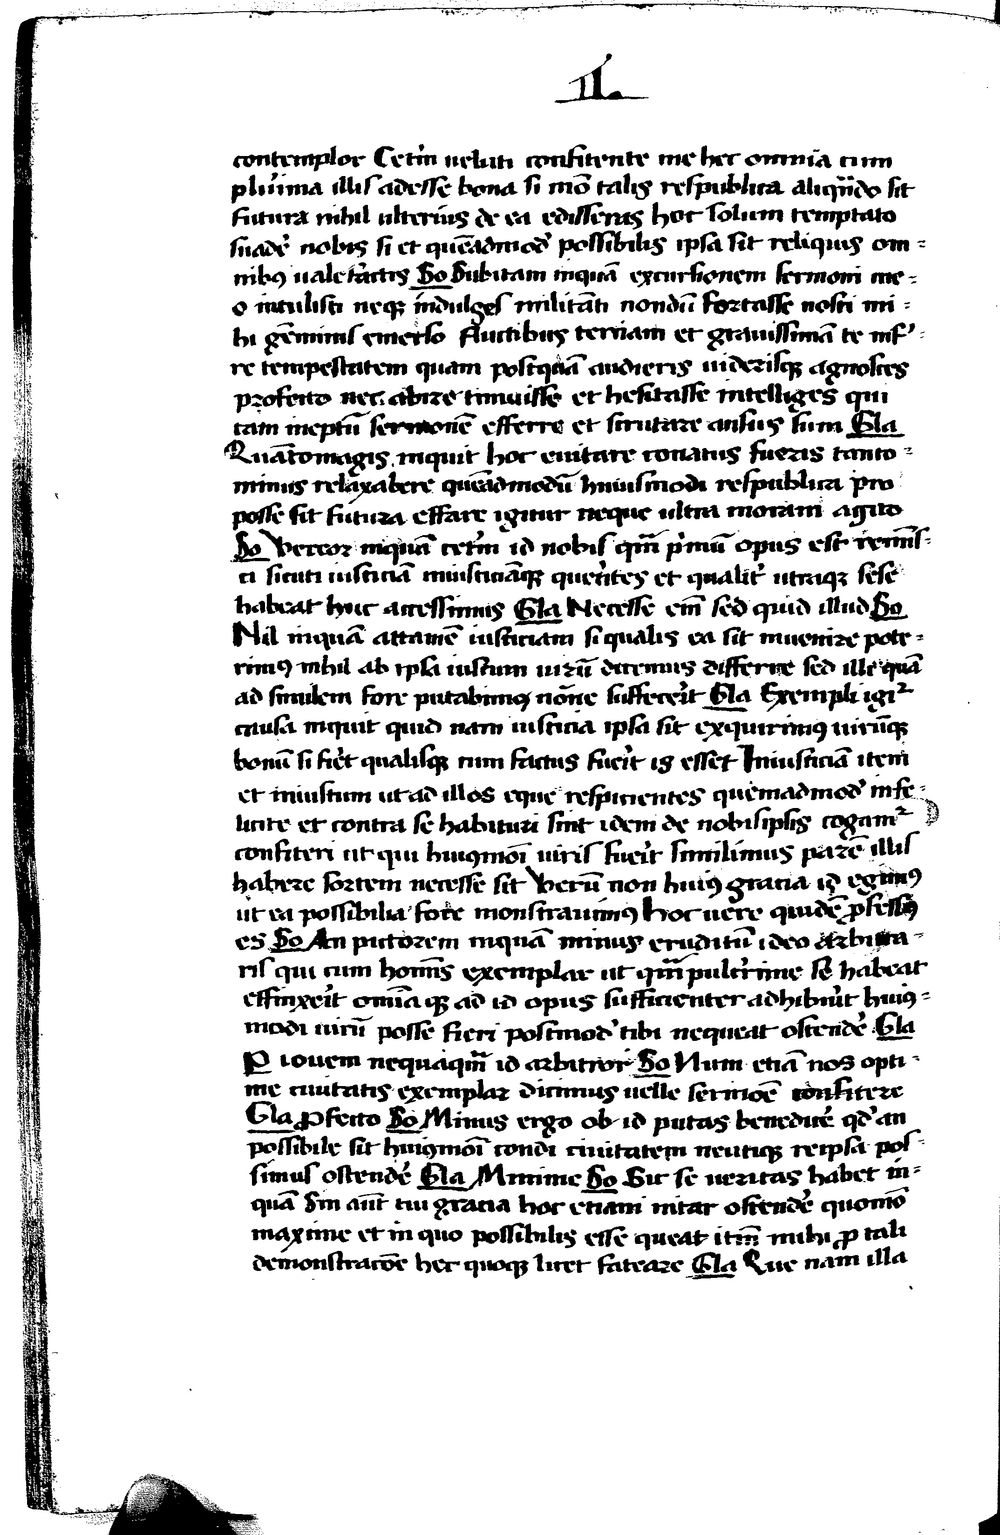 II.
contemplor Cet̉m veluti confitente me hec omnia cum
plurima illis adesse bona si mō talis respublica aliqñdo sit
futura nihil ulterius de ea edisseras hoc solum temptato
suadẻ nobis si et quēadmod̉ possibilis ipsa sit reliquis om=
nibꝰ valefactis So Subitam inquā excursionem sermoni me=
o intulisti neqꝫ indulges militāti nondū fortasse nosti mi=
hi gēminis emerso fluctibus terciam et gravissimā te infer̉=
re tempestatem quam postquā audieris viderisqꝫ agnosces
profecto nec abire timuisse et hesitasse intelliges qui
tam ineptū sermonē efferre et scrutare ausus sum Gla
Quātomagis inquit hoc evitare conatus fueris tanto=
minus relaxabere quēadmodū huiusmodi respublica pro
posse sit futura effare igitur neque ultra moram agito
So Vereor inquā cet̉m id nobis qm̄ pimū opus est reminis=
ci sicuti iusticiā iniusticiāqꝫ querētes et qualit̉ utraqꝫ sese
habeat huc accessimus Gla Necesse em̄ sed quid illud So
Nil inquā attamē iusticiam si qualis ea sit invenire pote=
rimꝰ nihil ab ipsa iustum virū dicemus differre sed ille quā
ad similem fore putabimꝰ nōne suffecerit Gla Exempli igit̉
causa inquit quid nam iusticia ipsa sit exquirimꝰ virūqꝫ
bonū si fiet qualisqꝫ cum factus fuerit is esset Iniusticiā item
et iniustum ut ad illos eque respicientes quēmadmod̉ infe=
licite et contra se habituri sint idem de nobisipsis cogam̉
confiteri ut qui huiꝰmoī viris fuerit similimus parē illis
habere sortem necesse sit Verū non huiꝰ gracia id egimꝰ
ut ea possibilia fore monstraremꝰ Hoc vere quidē ꝓfessꝰ
es So An putorem inquā minus eruditū ideo arbitra=
ris qui cum hominis exemplar ut qm̄ pulcrime se habeat
effinxerit omīa qꝫ ad id opus sufficienter adhibuerit huiꝰ=
modi virū posse fieri postmod̉ tibi nequeat ostendẻ Gla
P iovem nequaqm̄ id arbitror So Num etiā nos opti=
me civitatis exemplar dicimus velle sermoē confitere
Gla ꝓfecto So Minus ergo ob id putas benedicẻ qd̉ an
possibile sit huiꝰmoī condi civitatem neutiqꝫ reipsa pos=
simus ostendẻ Gla Minime So Sic se veritas habet in=
quā Sin aut̄ tui gracia hoc etiam nitar ostendẻ quomō
maxime et in quo possibilis esse queat itm̄ mihi ꝓ tali
demonstracōe hec quoqꝫ licet fateare Gla Que nam illa